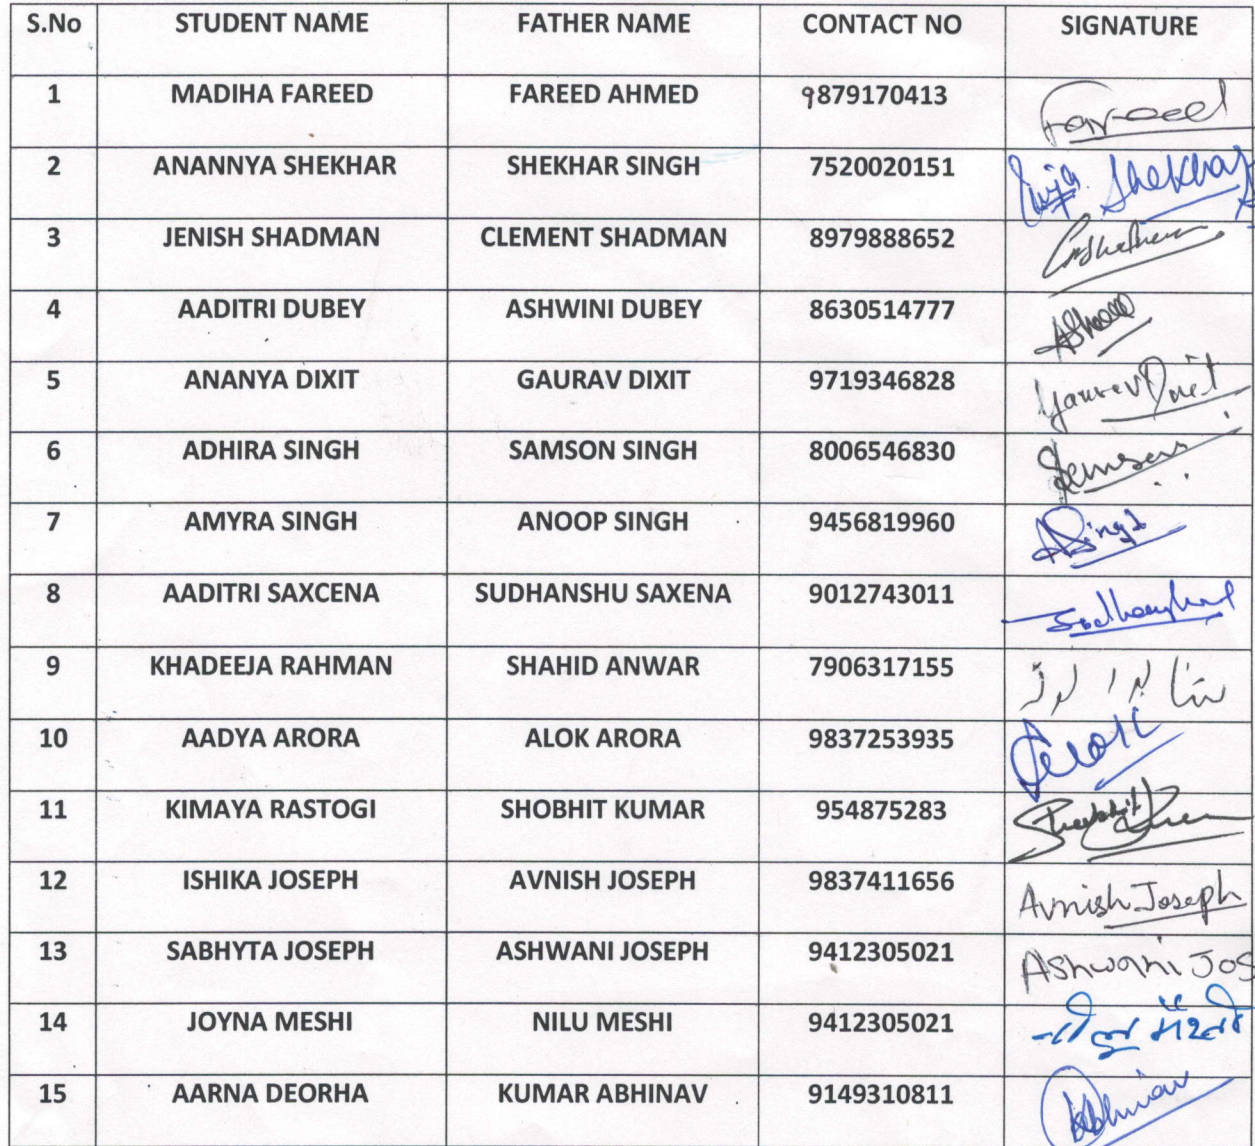 S.No STUDENT NAME FATHER NAME CONTACT NO SIGNATURE
1 MADIHA FAREED FAREED AHMED 9879170413 Fareed
2 ANANNYA SHEKHAR SHEKHAR SINGH 7520020151 Shekhar
3 JENISH SHADMAN CLEMENT SHADMAN 8979888652
4 AADITRI DUBEY ASHWINI DUBEY 8630514777
5 ANANYA DIXIT GAURAV DIXIT 9719346828
6 ADHIRA SINGH SAMSON SINGH 8006546830
7 AMYRA SINGH ANOOP SINGH 9456819960 ASingh
8 AADITRI SAXCENA SUDHANSHU SAXENA 9012743011
9 KHADEEJA RAHMAN SHAHID ANWAR 7906317155
10 AADYA ARORA ALOK ARORA 9837253935
11 KIMAYA RASTOGI SHOBHIT KUMAR 954875283
12 ISHIKA JOSEPH AVNISH JOSEPH 9837411656 Avnish Joseph
13 SABHYTA JOSEPH ASHWANI JOSEPH 9412305021 Ashwani Jos
14 JOYNA MESHI NILU MESHI 9412305021
15 AARNA DEORHA KUMAR ABHINAV 9149310811 Abhinav